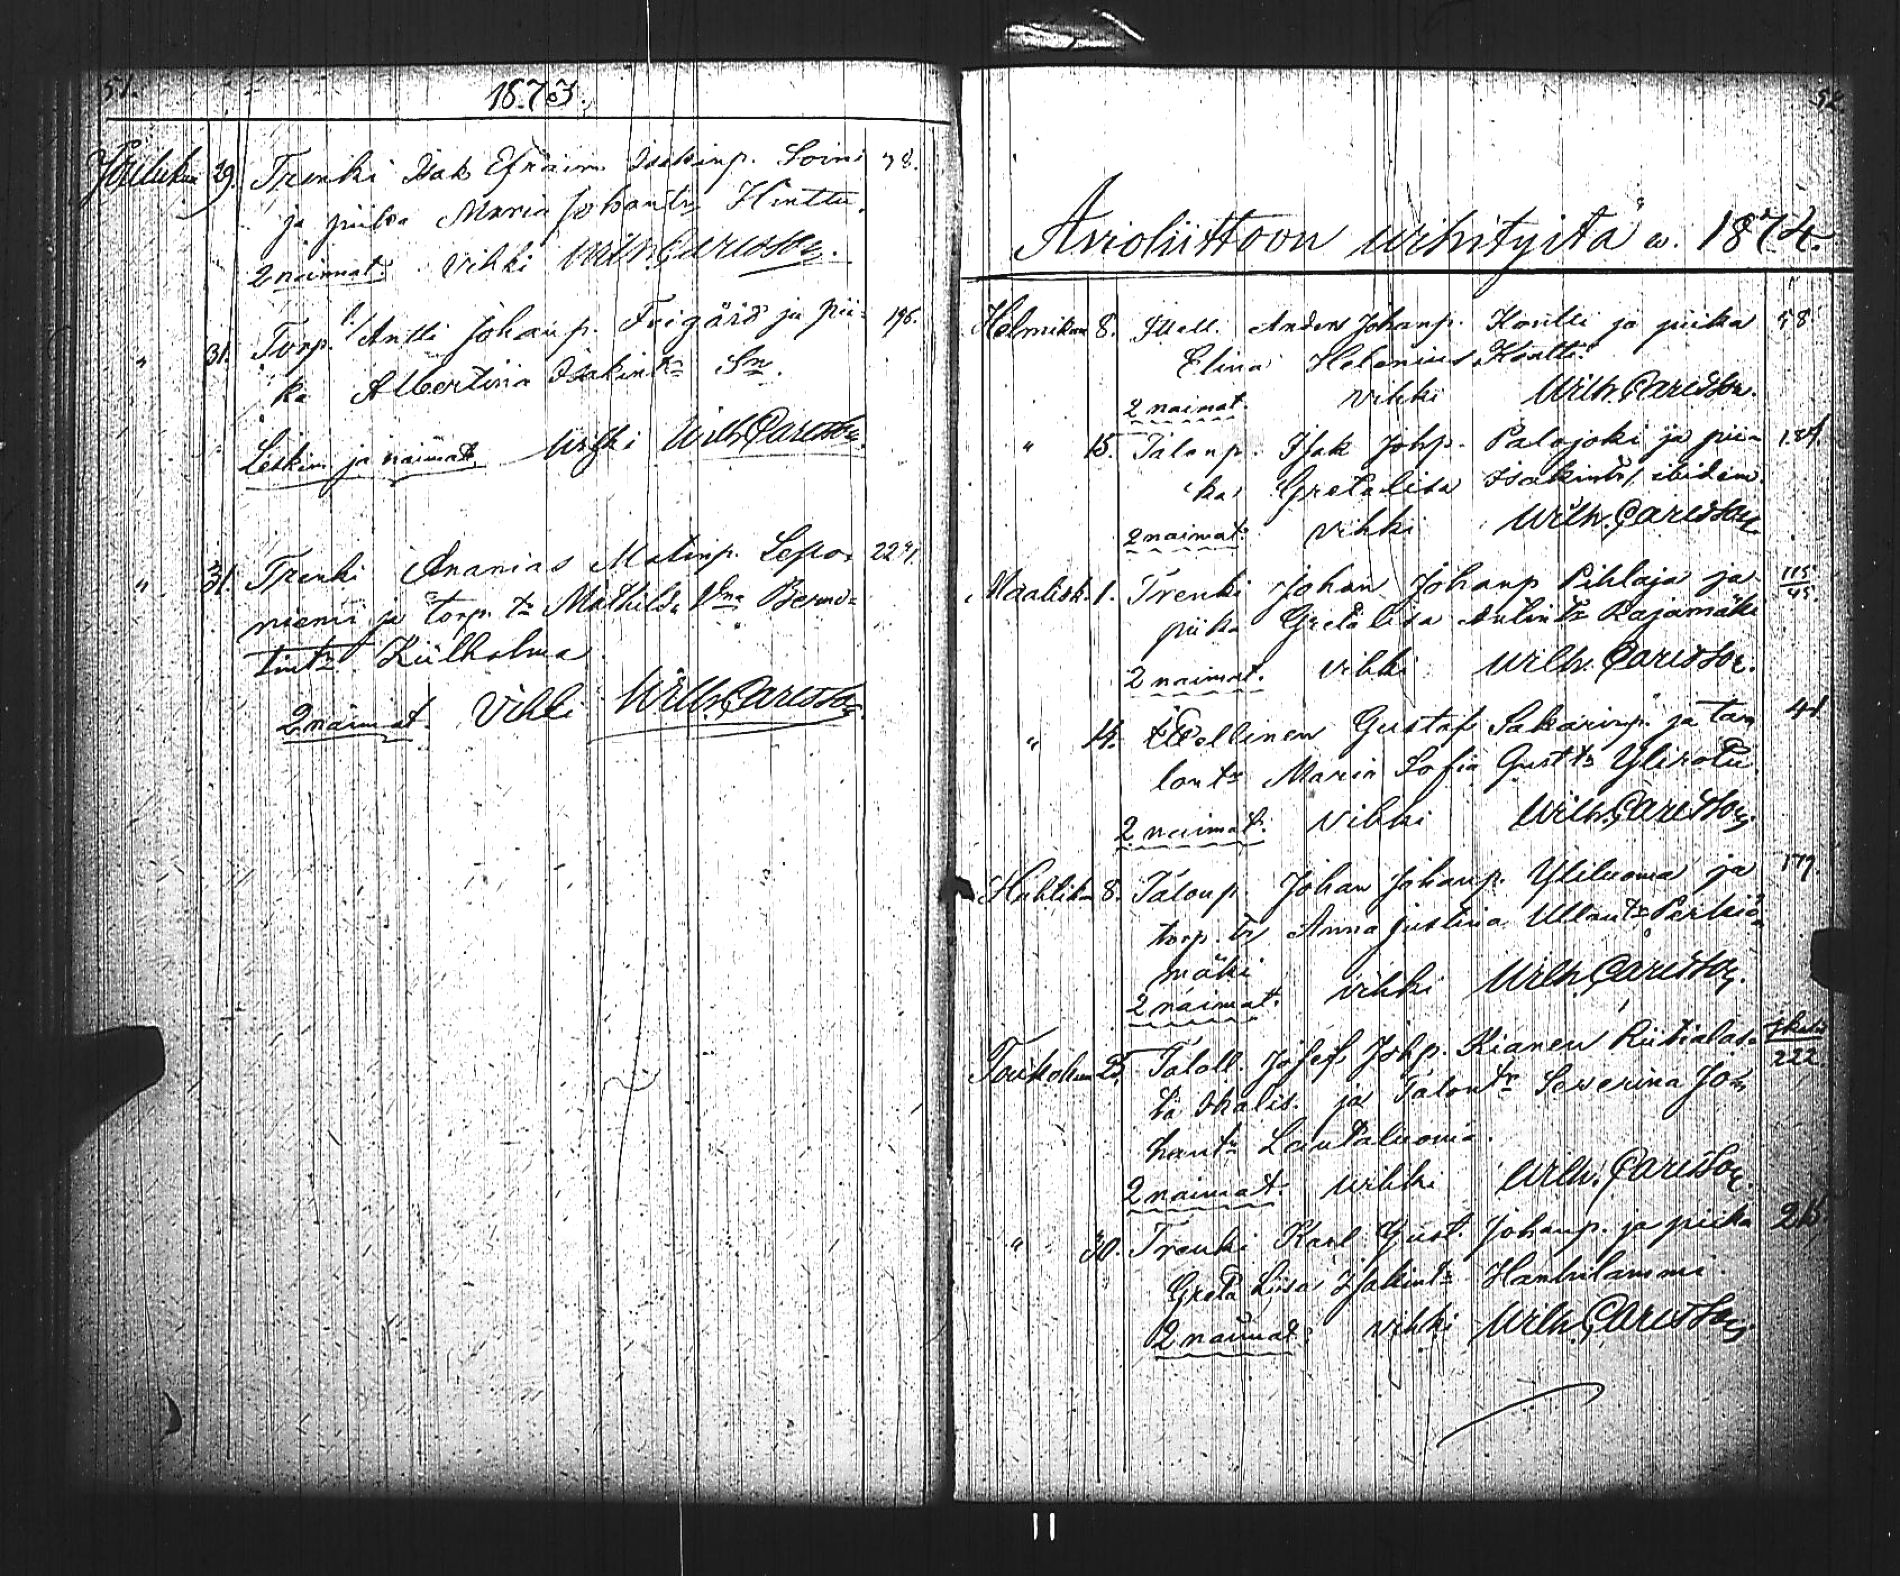 51.
1873.
Jouluku 29. Trenki Isak Efraim Isakinp. Soini 78.
ja piika Maria Johantr Hinttu.
2 naimat. Vihki Wilh. Carlsson.
" 31. Torp. l./ Antti Johanp. Frigård ja pii- 196.
ka Albertina Isakintr
Leskim. ja naimat. Wihki Wilh. Carlsson.
" 31. Trenki Ananias Matinp. Lepo-
niemi ja torp. tr Mathilda
tintr Kiilholma.
2 naimat. Vihki Wilh. Carlsson.
52.
Avioliittoon wihityitä w. 1874.
Helmikuu 8. Itsell. Anders Johanp. Kontti ja piika 58
Elina Helenius Kontti.
2 naimat. Vihki Wilh. Carlsson.
" 15. Talonp. Isak Johp. Palojoki ja pii-
ka Gretalisa Isakintr, ibidem.
2 naimat. Vihki Wilh. Carlsson.
Maalisk. 1. Trenki Johan Johanp Pihlaja ja 115/45.
piika Greta Lisa Antintr Rajamäki
2 naimat. Vihki Wilh. Carlsson.
" Gustaf Sakarinp. ja ta- 41
lontr Maria Sofia Gusttr Ylirotu.
2 naimat. Vihki Wilh. Carlsson.
Huhtiku 8. Talonp. Johan Johanp. Yliluoma ja 177
torp. tr Anna Justina Perkiö-
mäki
2 naimat. Vihki Wilh. Carlsson.
Toukokuu 25. Taloll. Josef Johp. Kianen Riitialas-
ta Ikalis. ja Talontr Sewerina Jo- 222.
hantr Lautaluoma.
2 naimat. Wihki Wilh. Carlsson.
" 30. Trenki Karl Gust. Johanp. ja piika
Greta Liisa Isakintr Hankilammi.
2 naimat. Vihki Wilh. Carlsson.
11